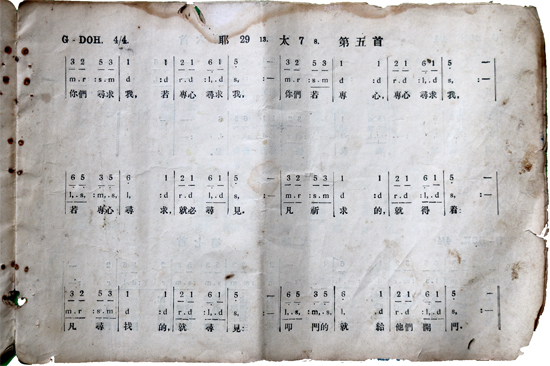 G - DOH. 4/4. 耶 29 13. 太 7 8. 第五首
3 2 5 3 | 1 1 | 2 1 6 1 | 5 — | 3 2 5 3 | 1 1 | 2 1 6 1 | 5 —
m.r :s.m | d :d | r.d :l,.d | s, :— | m.r :s.m | d :d | r.d :l,.d | s, :—
你們 尋求 我, 若 專心 尋求 我, 你們 若 專 心, 專心 尋求 我,
6 5 3 5 | 6 1 | 2 1 6 1 | 5 — | 3 2 5 3 | 1 1 | 2 1 6 1 | 5 —
l,.s, :m,.s, | l, :d | r.d :l,.d | s, :— | m.r :s.m | d :d | r.d :l,.d | s, :—
若 專心 尋 求, 就必 尋 見, 凡 祈 求 的, 就 得 着:
3 2 5 3 | 1 1 | 2 1 6 1 | 5 — | 6 5 3 5 | 6 1 | 2 1 6 1 | 5 —
m.r :s.m | d :d | r.d :l,.d | s, :— | l,.s, :m,.s, | l, :d | r.d :l,.d | s, :—
凡 尋 找 的, 就 尋 見: 叩 門的 就 給 他們 開 門.